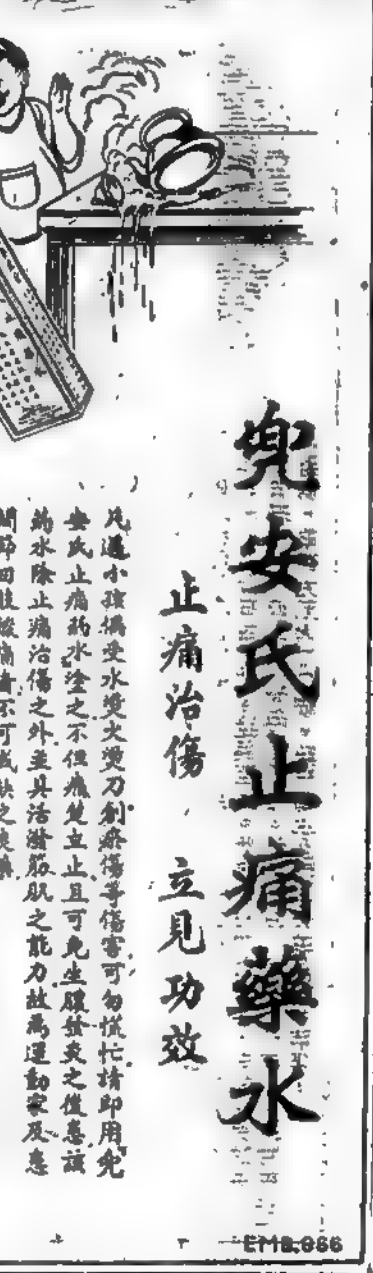 兜安氏止痛藥水
止痛治傷 立見功效
凡遇小孩偶受水燙火燙刀割擦傷等傷害可勿慌忙請即用兜
安氏止痛葯水塗之不但痛楚立止且可免生膿發炎之後患該
葯水除止痛治傷之外並具活潑筋肌之能力故為運動家及患
關節四肢酸痛者不可或缺之良藥
EMB.066